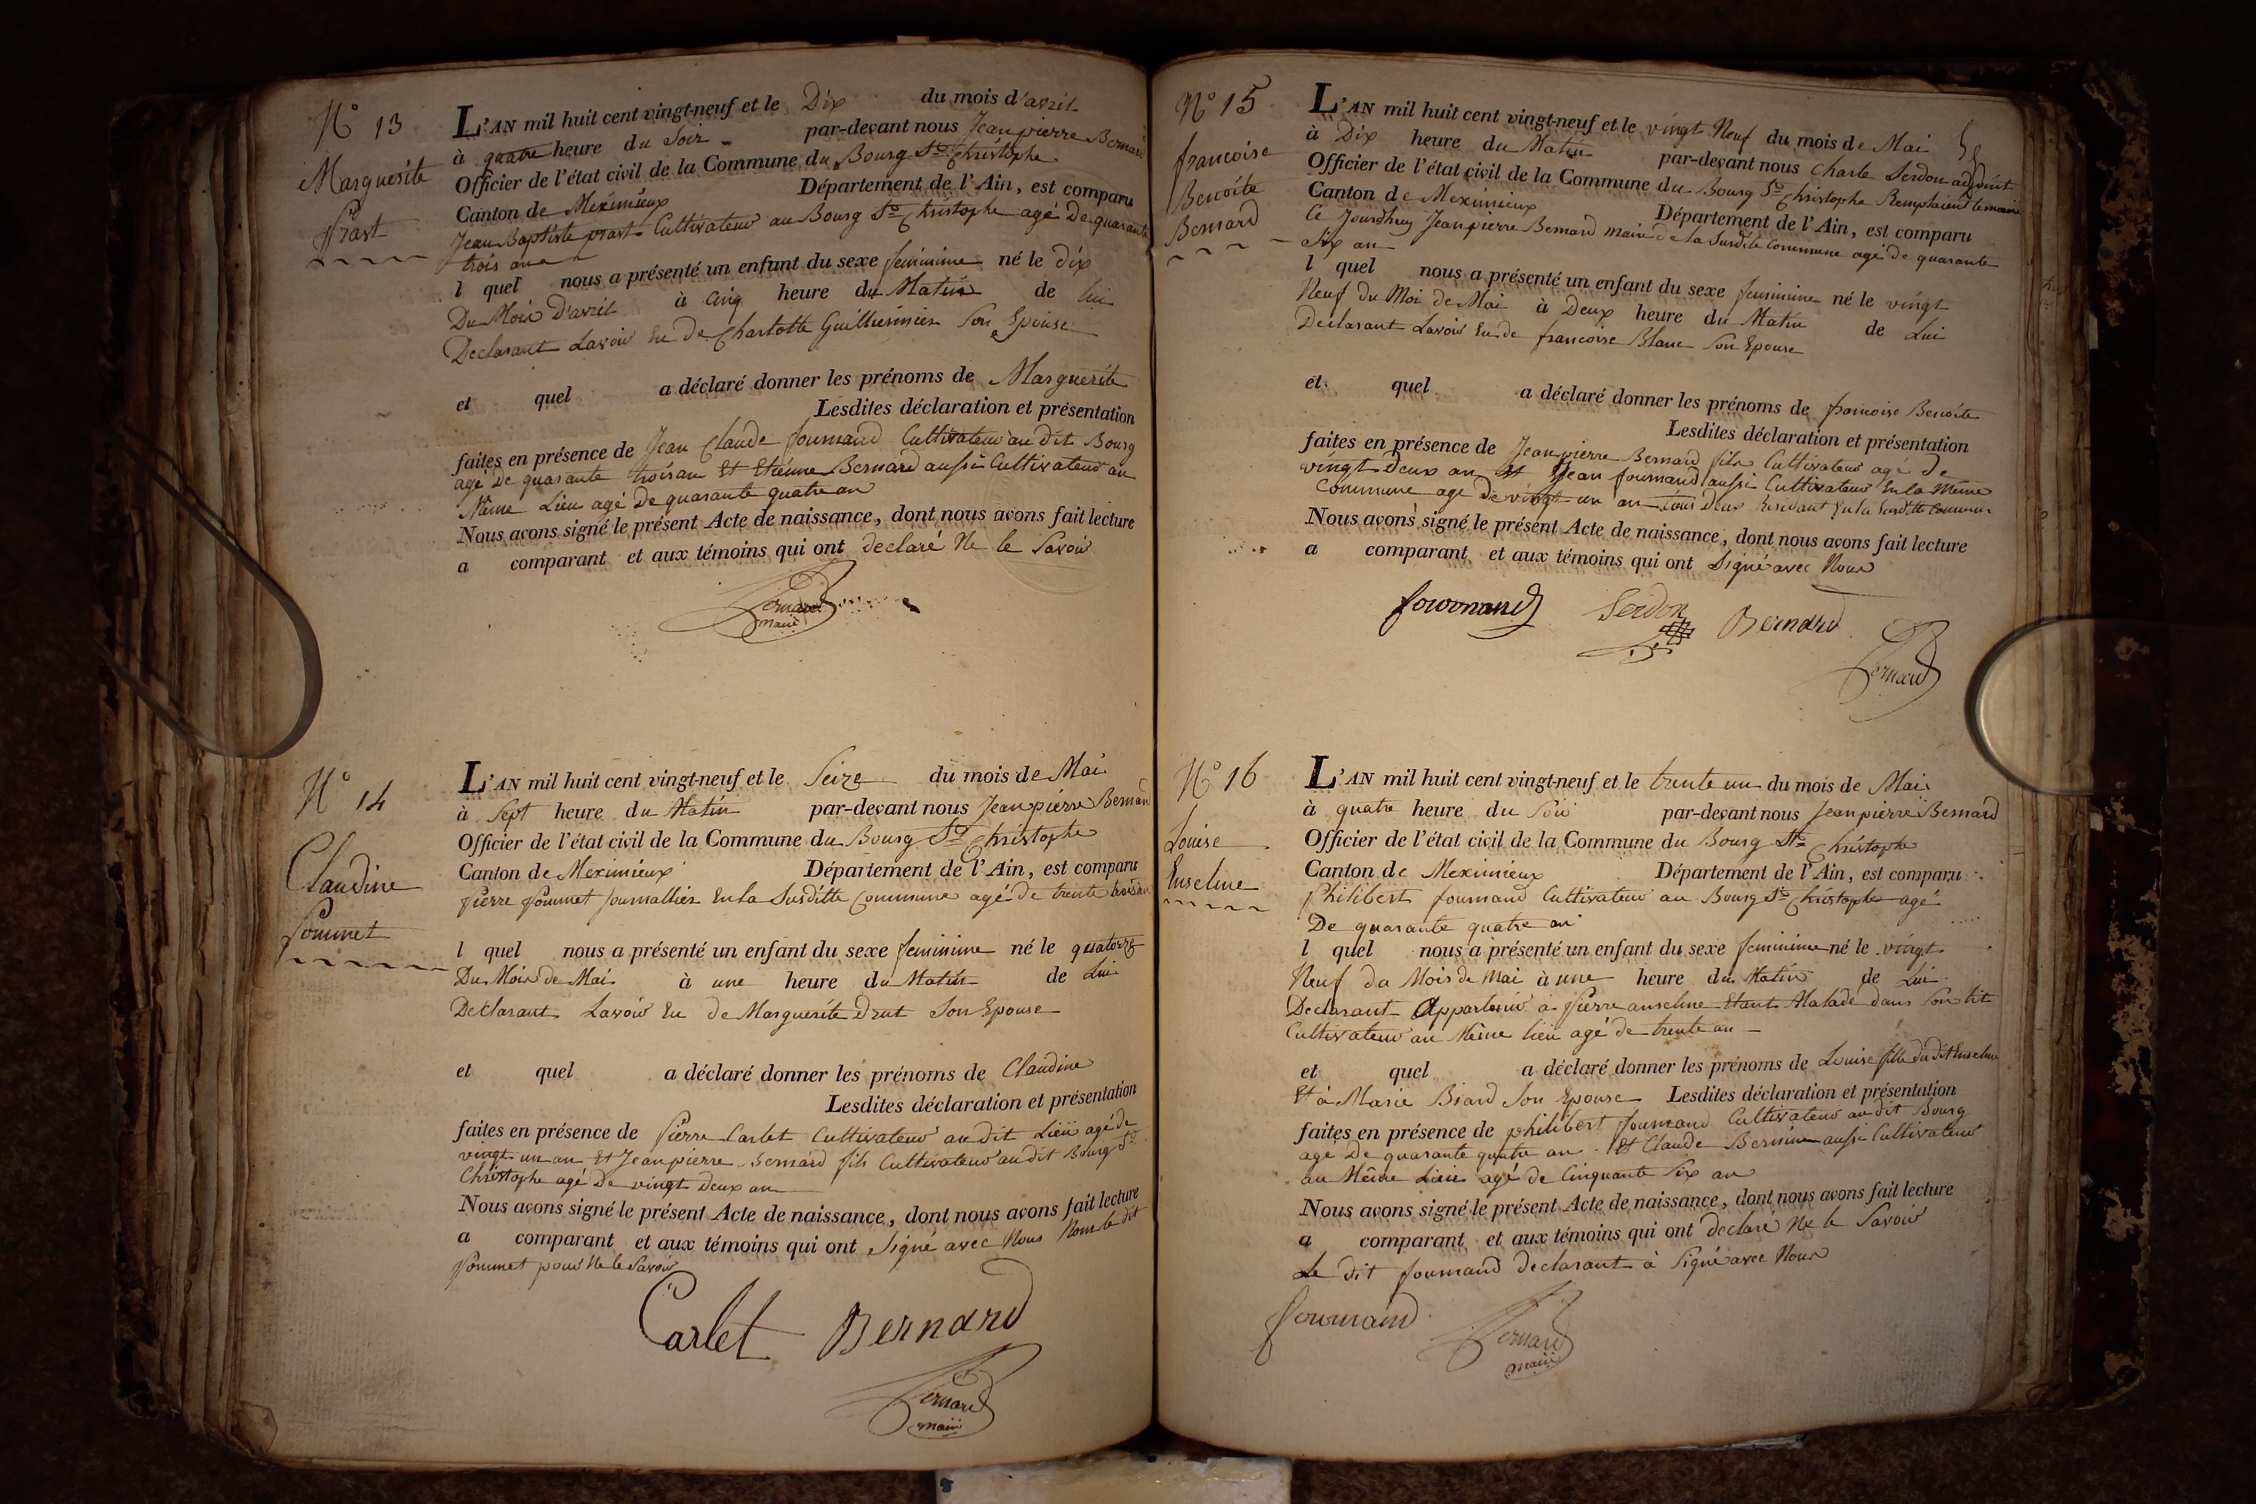 N° 13
Marguerite
Prast
L'AN mil huit cent vingt-neuf et le Dix du mois d'avril
à quatre heure du Soir par-devant nous Jeanpierre Bernard
Officier de l'état civil de la Commune du Bourg St Christophe
Canton de Meximieux Département de l'Ain, est comparu
Jean Baptiste prast Cultivateur au Bourg St Christophe agé De quarante
trois an
l quel nous a présenté un enfant du sexe feminime né le dix
Du Mois D'avril à cinq heure du Matin de lui
Declarant Lavoir Eu de Charlotte Son Epouse
et quel a déclaré donner les prénoms de Marguerite
Lesdites déclaration et présentation
faites en présence de Jean Claude fournand Cultivateur au Dit Bourg
agé De quarante trois an Et Etienne Bernard aussi Cultivateur au
Même Lieu agé De quarante quatre an
Nous avons signé le présent Acte de naissance, dont nous avons fait lecture
a comparant et aux témoins qui ont declaré Ne le Savoir
Bernard
maire
N° 14
Claudine
Pommet
L'AN mil huit cent vingt-neuf et le Seize du mois de Mai
à Sept heure du Matin par-devant nous Jeanpierre Bernard
Officier de l'état civil de la Commune du Bourg St Christophe
Canton de Meximieux Département de l'Ain, est comparu
Pierre Pommet Journallier En la Susditte Commune agé De trente trois an
l quel nous a présenté un enfant du sexe feminime né le quatorze
Du Mois de Mai à une heure du Matin de Lui
Declarant Lavoir Eu De Marguerite Drut Son Epouse
et quel a déclaré donner les prénoms de Claudine
Lesdites déclaration et présentation
faites en présence de Pierre Carlet Cultivateur au dit Lieu agé de
vingt un an Et Jeanpierre Bernard fils Cultivateur au dit Bourg St
Christophe agé De vingt Deux an
Nous avons signé le présent Acte de naissance, dont nous avons fait lecture
a comparant et aux témoins qui ont Signé avec Nous Nom le dit
Pommet pour Ne le Savoir
Carlet Bernard
Bernard
maire
N° 15
francoise
Benoite
Bernard
L'AN mil huit cent vingt-neuf et le vingt Neuf du mois de Mai
à Dix heure du Matin par-devant nous Charle Serdon adjoint
Officier de l'état civil de la Commune du Bourg St Christophe Remplaient le maire
Canton de Meximieux Département de l'Ain, est comparu
Ce Jourdhuy Jeanpierre Bernard maire de la Susdite Commune agé de quarante
Six an
l quel nous a présenté un enfant du sexe feminime né le vingt
Neuf du Moi de Mai à Deux heure du Matin de Lui
Declarant Lavoir Eu de francoise Blanc Son Epouse
et quel a déclaré donner les prénoms de francoise Benoite
Lesdites déclaration et présentation
faites en présence de Jeanpierre Bernard fils Cultivateur agé De
vingt Deux an Et Jean fournand aussi Cultivateur En la Même
Commune agé De vingt un an tous Deux En la Susditte Commune
Nous avons signé le présent Acte de naissance, dont nous avons fait lecture
a comparant et aux témoins qui ont Signé avec Nous
fournand Serdon Bernard
Bernard
N° 16
Louise
Enselme
L'AN mil huit cent vingt-neuf et le trente un du mois de Mai
à quatre heure du Soir par-devant nous Jeanpierre Bernard
Officier de l'état civil de la Commune du Bourg St Christophe
Canton de Meximieux Département de l'Ain, est comparu
Philibert fournand Cultivateur au Bourg St Christophe agé
De quarante quatre an
l quel nous a présenté un enfant du sexe feminime né le vingt
Neuf du Mois de Mai à une heure du Matin de Lui
Declarant Appartenir à Pierre anselme Etant Malade dans Son lit
Cultivateur au Même lieu agé de trente an
et quel a déclaré donner les prénoms de Louise fille du dit Enselme
Et à Marie Biard Son Epouse Lesdites déclaration et présentation
faites en présence de philibert fournand Cultivateur au dit Bourg
agé De quarante quatre an Et Claude aussi Cultivateur
au Même Lieu agé de Cinquante Six an
Nous avons signé le présent Acte de naissance, dont nous avons fait lecture
a comparant et aux témoins qui ont declaré Ne le Savoir
Le dit fournand Declarant à Signé avec Nous
fournand
Bernard
maire